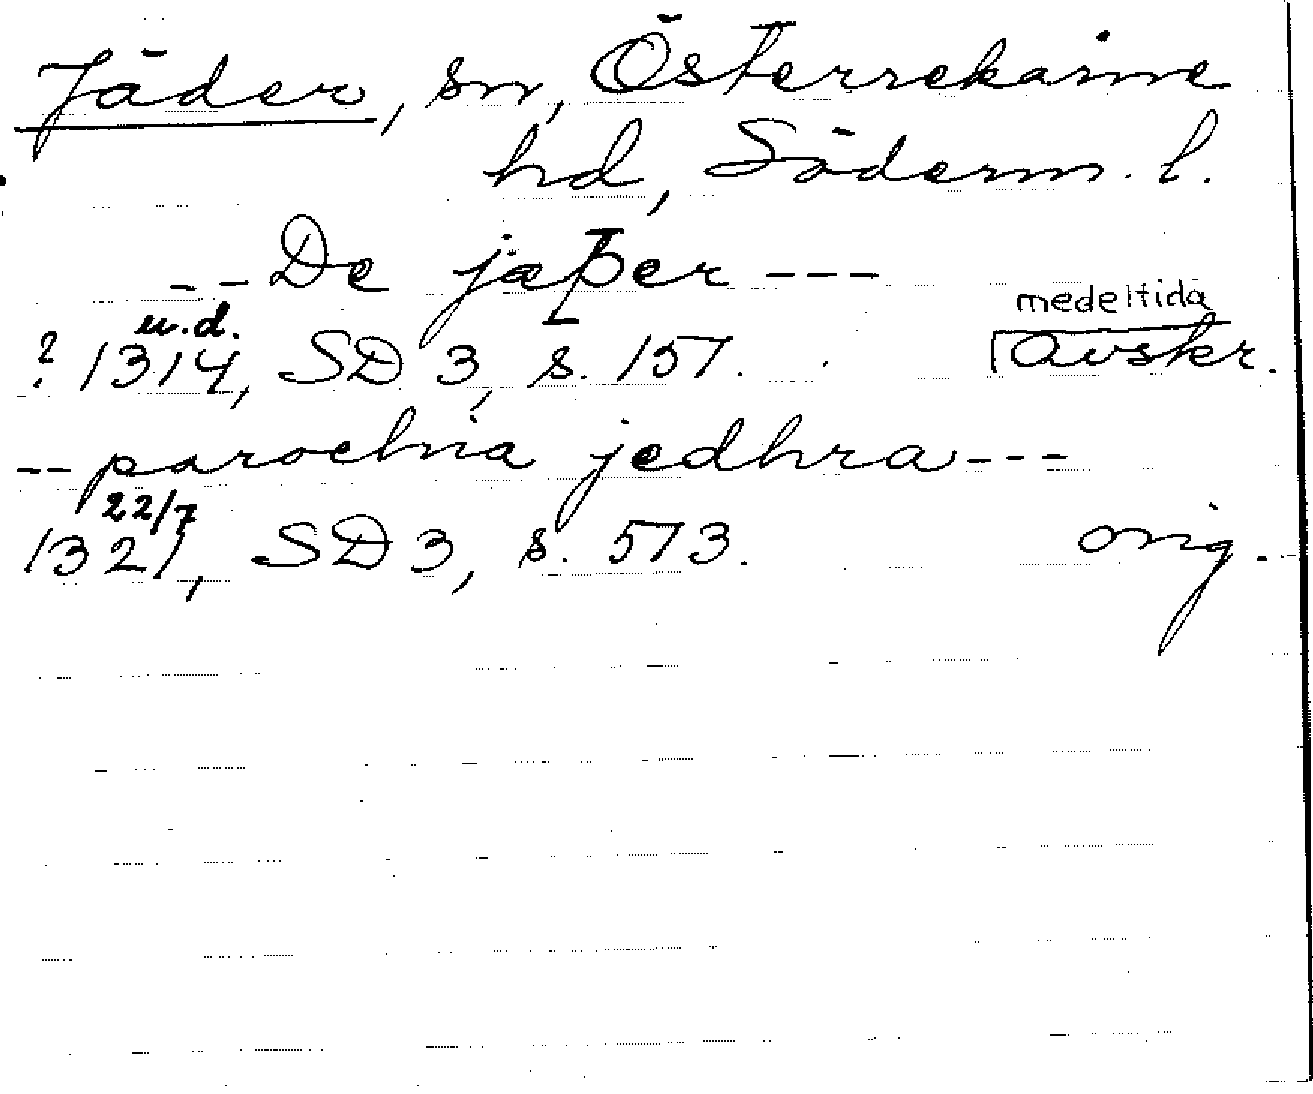 Jäder, sn, Österrekarne
hd, Söderm. l.
-- De jæþer ---
medeltida
u.d.
? 1314, SD 3, s. 157. avskr.
-- parochia jedhra ---
22/7
1321, SD 3, s. 573. orig.